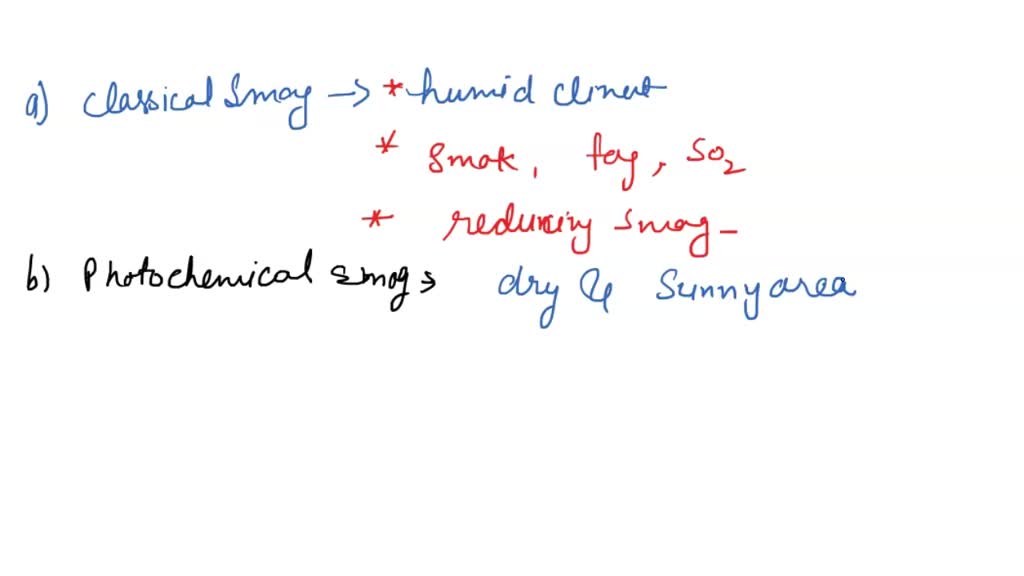 a) Classical Smog → * humid climat
* Smok, fog, SO2
* reducing smog -
b) Photochemical smog → dry & Sunny area